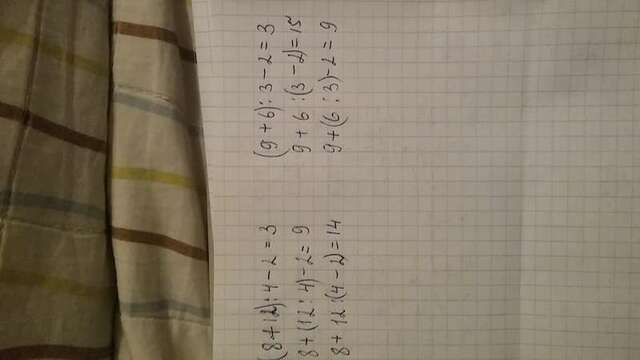 (8+12):4-2=3
8+(12:4)-2=9
8+12:(4-2)=14
(9+6):3-2=3
9+6:(3-2)=15
9+(6:3)-2=9